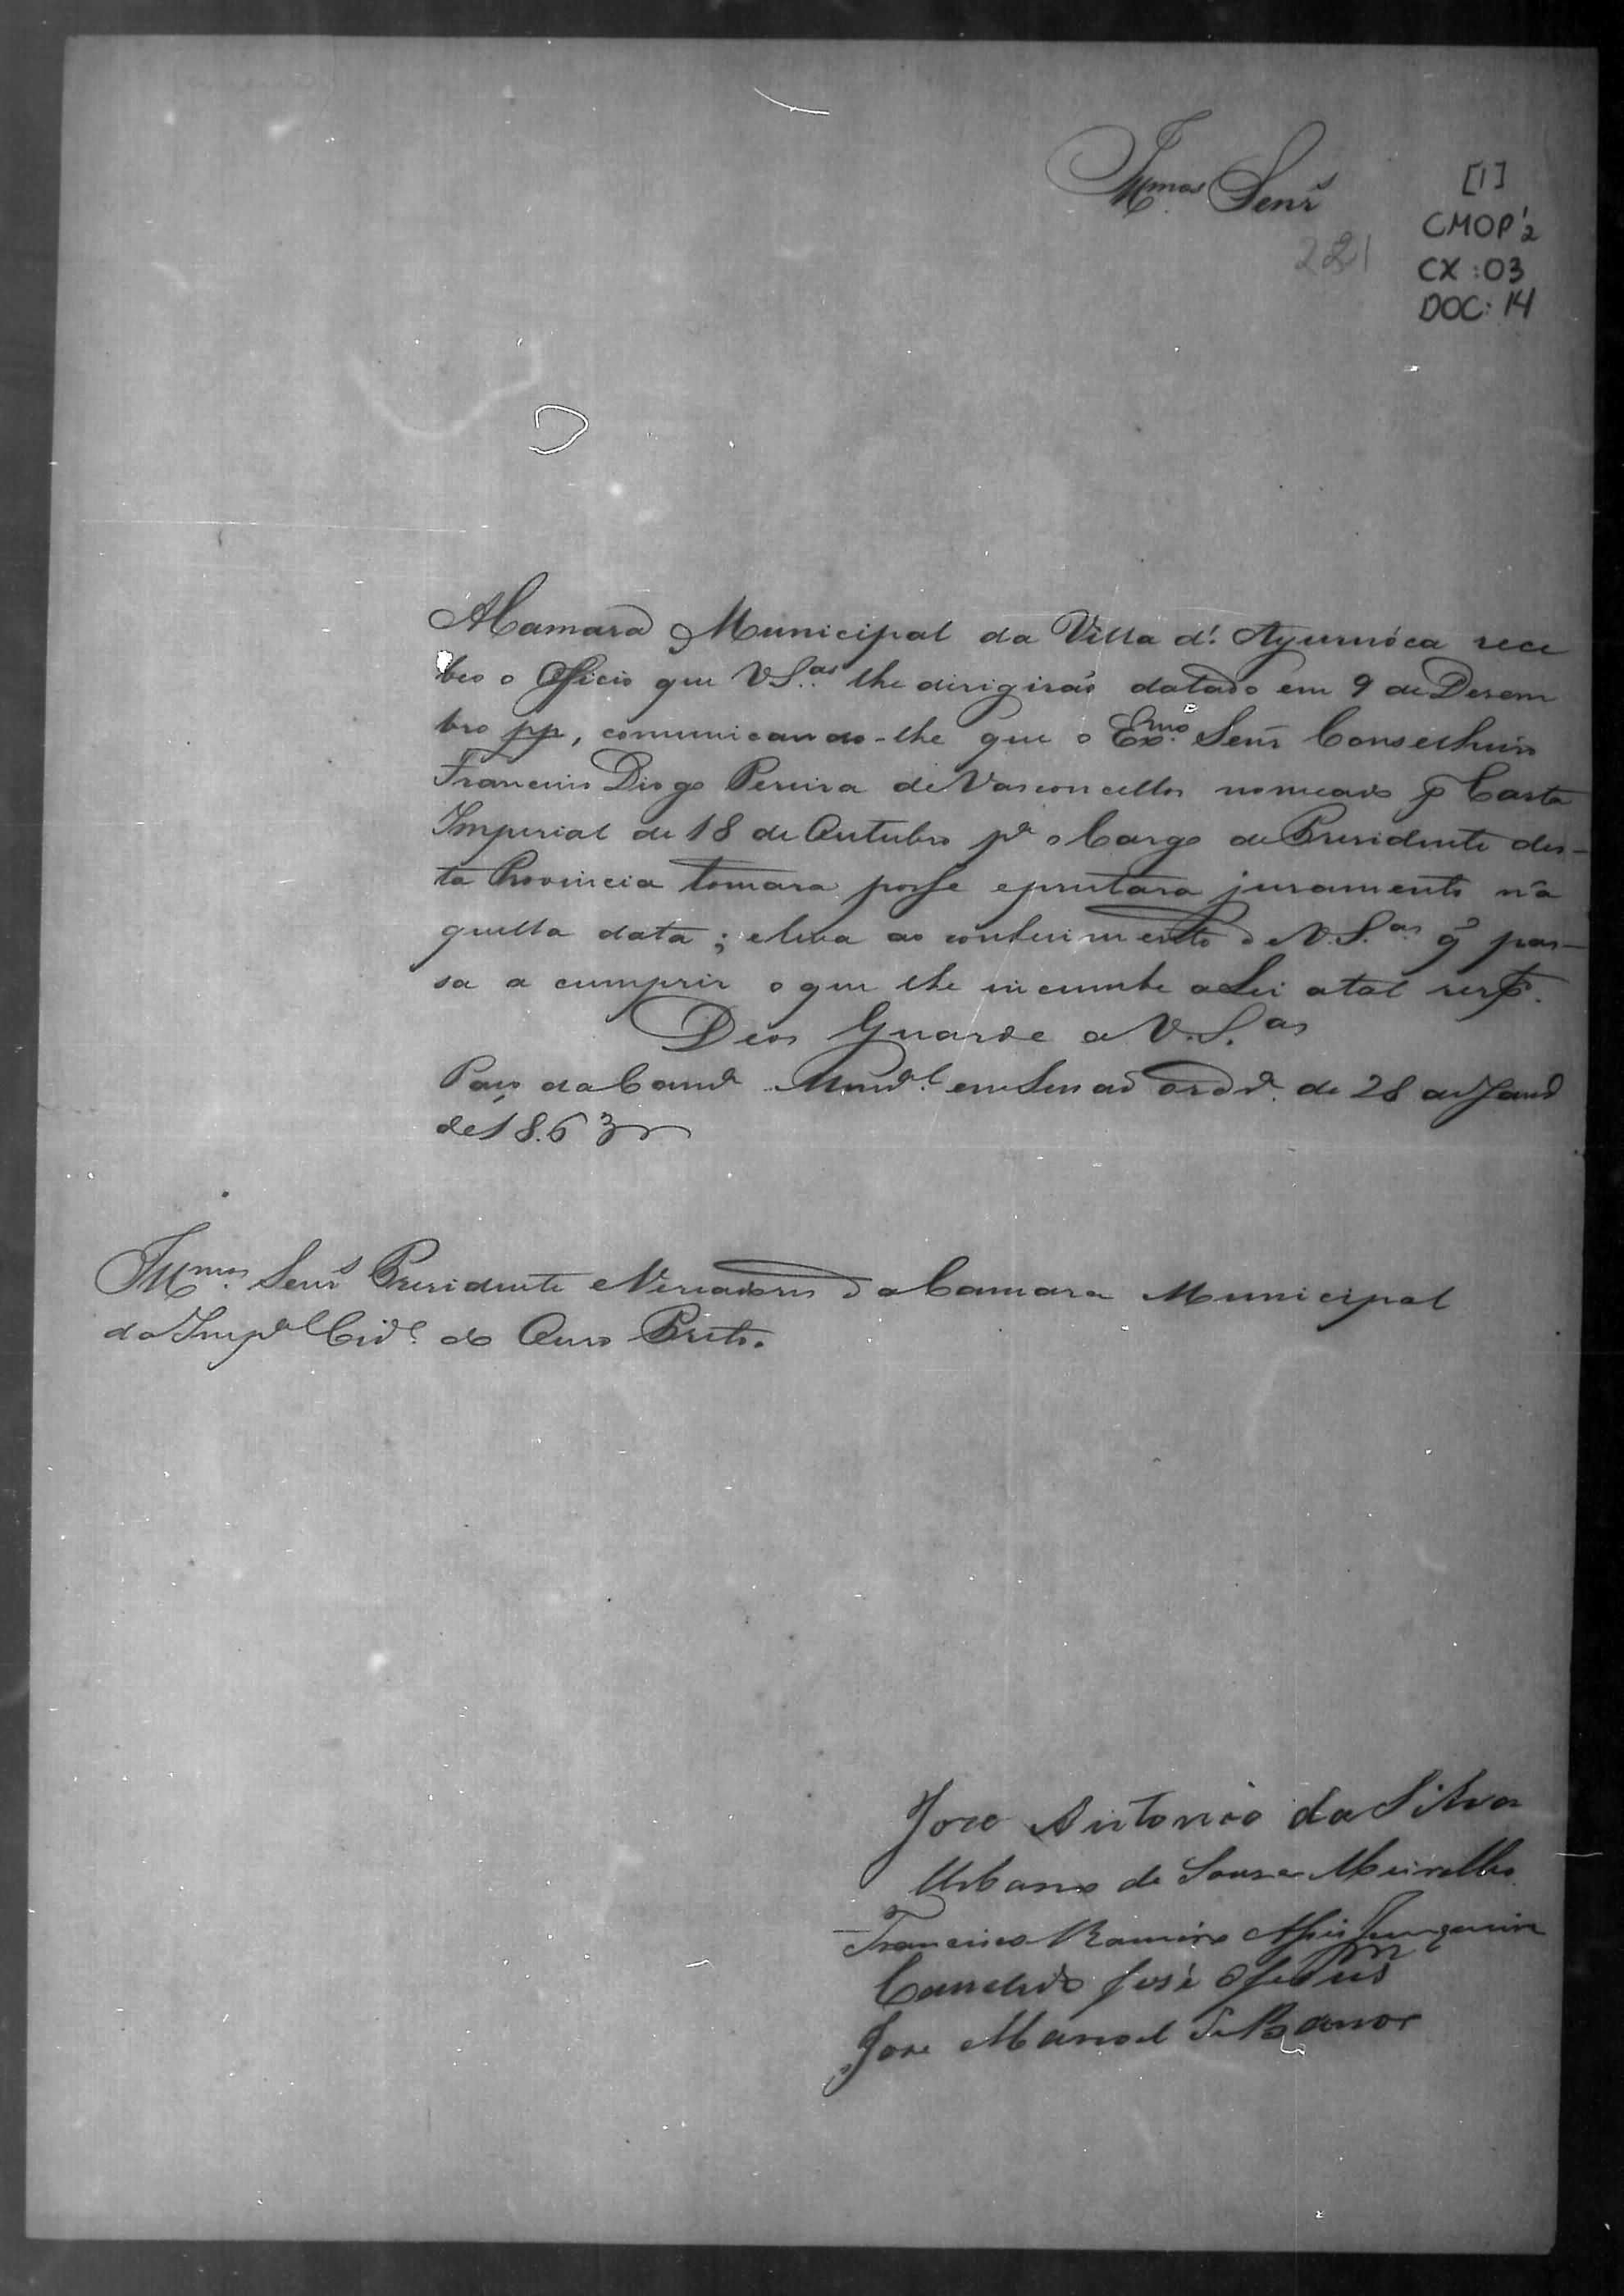 Illmos Senrs
[1]
CMOP'2
221
CX:03
DOC: 14
A Camara Municipal da Villa d'Ayuruóca rece
beo o Officio que V Sas lhe dirigirão datado em 9 de Desem
bro pp, comunicando-lhe que o Exmo Senr Conselheiro
Francisco Diogo Pereira de Vasconcellos nomeado p Carta
Imperial de 18 de Outubro pa o Cargo de Presidente des-
ta Provincia tomara posse e prestara juramento na
quella data; e leva ao conhecimento de V.Sas q pas-
sa a cumprir o que lhe incumbe a Lei a tal respo.
Deos Guarde a V.Sas
Paço da Camra Munal em Sessão ordra de 28 de Janro
de 1863
Illmos Senrs Presidente e Vereadores da Camara Municipal
da Impal Cide do Ouro Preto.
Jose Antonio da Silva
Urbano de Souza Meirelles
Francisco Ramiro Junqueira
Candido José
Jose Manoel de Barros